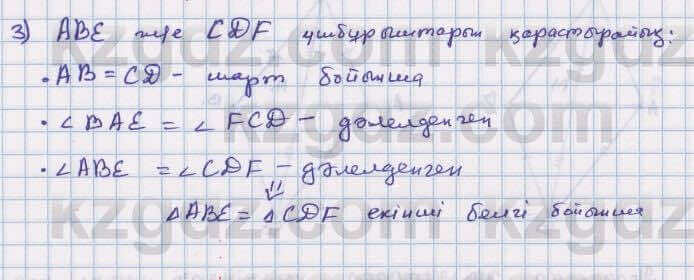 3) ABE және CDF үшбұрыштарын қарастырайық:
· AB = CD - шарт бойынша
· ∠BAE = ∠FCD - дәлелденген
· ∠ABE = ∠CDF - дәлелденген
⇓
△ABE = △CDF екінші белгі бойынша